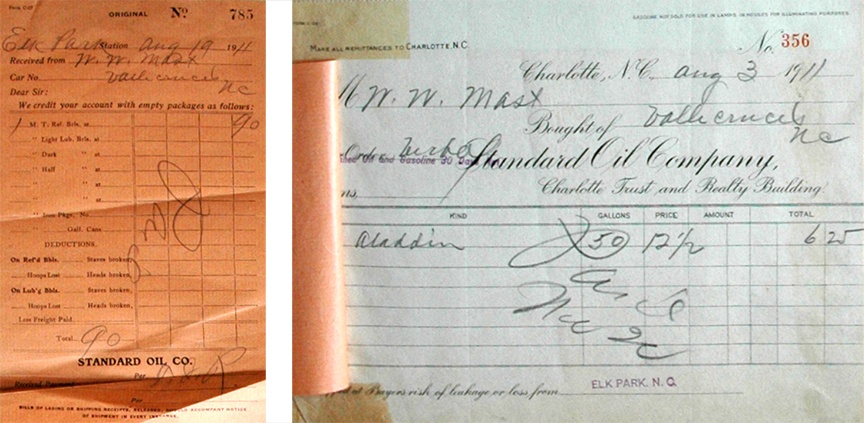 ORIGINAL No. 785
Elk Park Station Aug 19 1911
Received from W. W. Mast
Car No. Valle crucis
NC
Dear Sir:
We credit your account with empty packages as follows:
1 M. T. Ref. Brls. at 90
" Light Lub. Brls. at
" Dark " at
" Half " at
" " at
" " at
" " at
" Iron Pkgs., No.
" Galf. Cans
DEDUCTIONS.
On Ref'd Bbls. Staves broken,
Hoops Lost Heads broken,
On Lub'g Bbls. Staves broken,
Hoops Lost Heads broken,
Less Freight Paid.
Total 90
STANDARD OIL CO.
Received Payment Per
Per
BILLS OF LADING OR SHIPPING RECEIPTS, RELEASED, SHOULD ACCOMPANY NOTICE
OF SHIPMENT IN EVERY INSTANCE.
GASOLINE NOT SOLD FOR USE IN LAMPS, IN HOUSES FOR ILLUMINATING PURPOSES.
MAKE ALL REMITTANCES TO CHARLOTTE, N.C.
No. 356
Charlotte, N.C. Aug 3 1911
M W. W. Mast
Bought of Valle crucis
NC
Order
Oil and Gasoline 30
Standard Oil Company,
Charlotte Trust and Realty Building.
KIND GALLONS PRICE AMOUNT TOTAL
Aladdin 50 12 1/2 6 25
at Buyers risk of leakage or loss from ELK PARK, N. C.